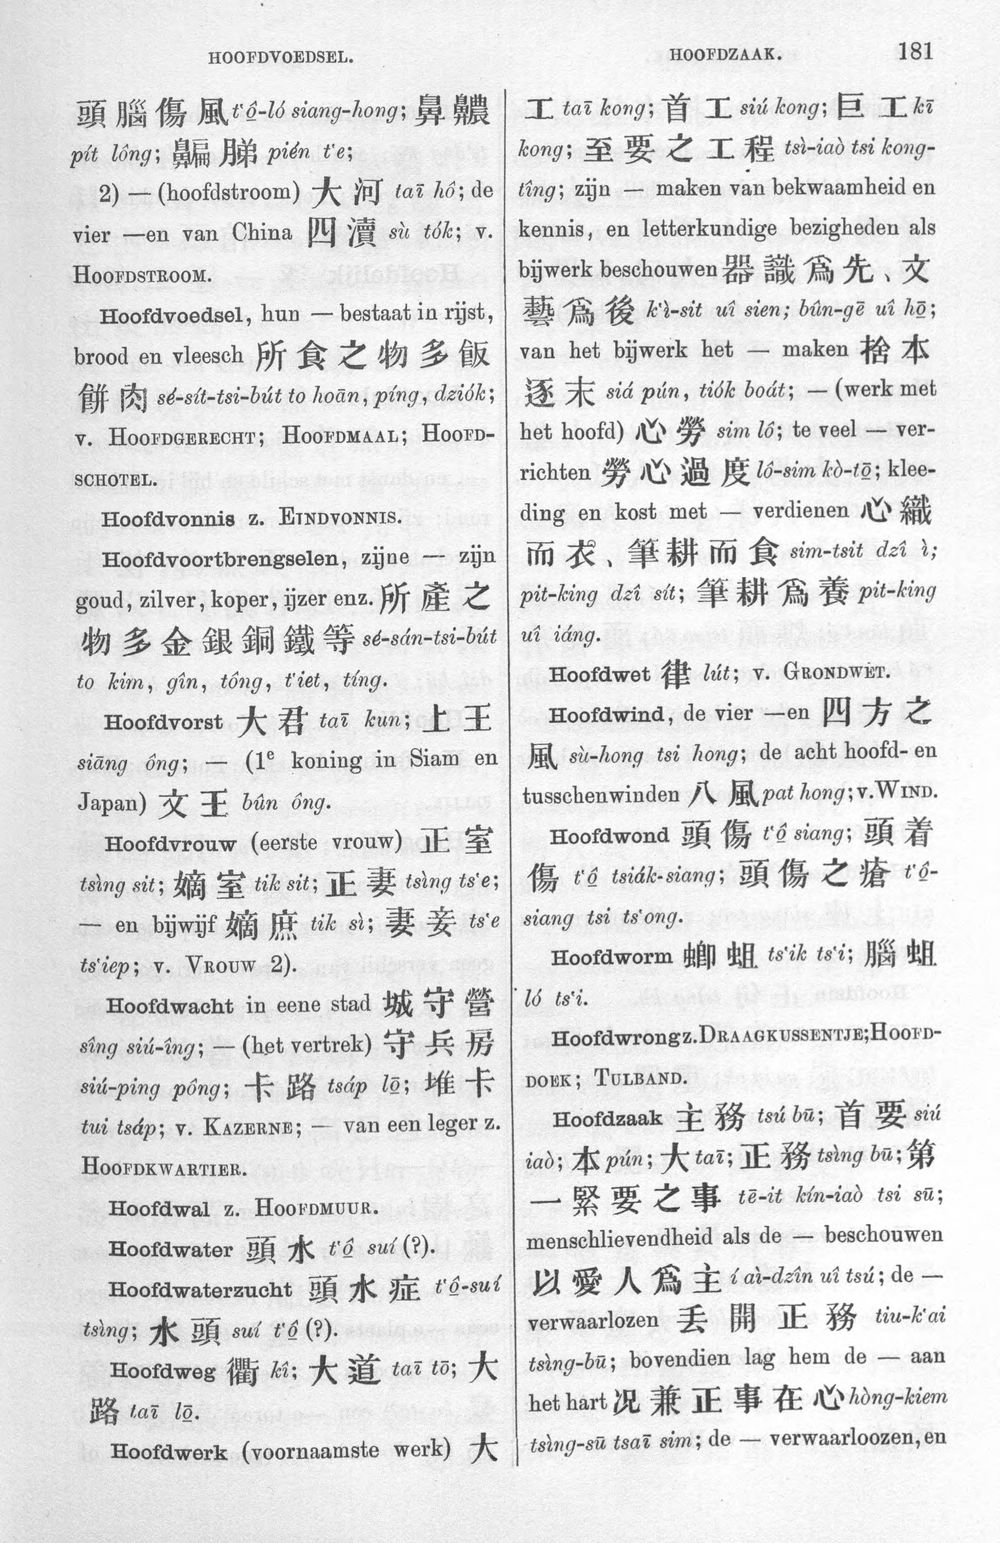 HOOFDVOEDSEL.
HOOFDZAAK.
181
頭腦傷風 t'ô̱-ló siang-hong; 鼻齈
pít lông; 鼻扁 䏲 pién t'e;
2) — (hoofdstroom) 大河 taī hô; de
vier —en van China 四瀆 sù tók; v.
HOOFDSTROOM.
Hoofdvoedsel, hun — bestaat in rijst,
brood en vleesch 所食之物多飯
餅肉 sé-sít-tsi-bút to hoān, píng, dziók;
v. HOOFDGERECHT; HOOFDMAAL; HOOFD-
SCHOTEL.
Hoofdvonnis z. EINDVONNIS.
Hoofdvoortbrengselen, zijne — zijn
goud, zilver, koper, ijzer enz. 所產之
物多金銀銅鐵等 sé-sán-tsi-bút
to kim, gîn, tông, t'iet, tíng.
Hoofdvorst 大君 taī kun; 上王
siāng ông; — (1e koning in Siam en
Japan) 文王 bûn ông.
Hoofdvrouw (eerste vrouw) 正室
tsìng sit; 嫡室 tik sit; 正妻 tsìng ts'e;
— en bijwijf 嫡庶 tik sì; 妻妾 ts'e
ts'iep; v. VROUW 2).
Hoofdwacht in eene stad 城守營
sîng siú-îng; — (het vertrek) 守兵房
siú-ping pông; 卡路 tsáp lō; 堆卡
tui tsáp; v. KAZERNE; — van een leger z.
HOOFDKWARTIER.
Hoofdwal z. HOOFDMUUR.
Hoofdwater 頭水 t'ô̱ suí (?).
Hoofdwaterzucht 頭水症 t'ô̱-suí
tsìng; 水頭 suí t'ô̱ (?).
Hoofdweg 衢 kî; 大道 taī tō; 大
路 taī lō̱.
Hoofdwerk (voornaamste werk) 大
工 taī kong; 首工 siú kong; 巨工 kī
kong; 至要之工程 tsì-iaò tsi kong-
tîng; zijn — maken van bekwaamheid en
kennis, en letterkundige bezigheden als
bijwerk beschouwen 器識爲先、文
藝爲後 k'ì-sit uî sien; bûn-gē uî hō̱;
van het bijwerk het — maken 捨本
逐末 siá pún, tiók boát; — (werk met
het hoofd) 心勞 sim lô; te veel — ver-
richten 勞心過度 lô-sim kò-tō̱; klee-
ding en kost met — verdienen 心織
而衣、筆耕而食 sim-tsit dzî ì;
pit-king dzî sít; 筆耕爲養 pit-king
uî iáng.
Hoofdwet 律 lút; v. GRONDWET.
Hoofdwind, de vier —en 四方之
風 sù-hong tsi hong; de acht hoofd- en
tusschenwinden 八風 pat hong; v. WIND.
Hoofdwond 頭傷 t'ô̱ siang; 頭着
傷 t'ô̱ tsiák-siang; 頭傷之瘡 t'ô̱-
siang tsi ts'ong.
Hoofdworm 蝍蛆 ts'ik ts'i; 腦蛆
ló ts'i.
Hoofdwrong z. DRAAGKUSSENTJE; HOOFD-
DOEK; TULBAND.
Hoofdzaak 主務 tsú bū; 首要 siú
iaò; 本 pún; 大 taī; 正務 tsìng bū; 第
一緊要之事 tē-it kín-iaò tsi sū;
menschlievendheid als de — beschouwen
以愛人爲主 í aì-dzîn uî tsú; de —
verwaarlozen 丟開正務 tiu-k'ai
tsìng-bū; bovendien lag hem de — aan
het hart 况兼正事在心 hòng-kiem
tsìng-sū tsaī sim; de — verwaarloozen, en